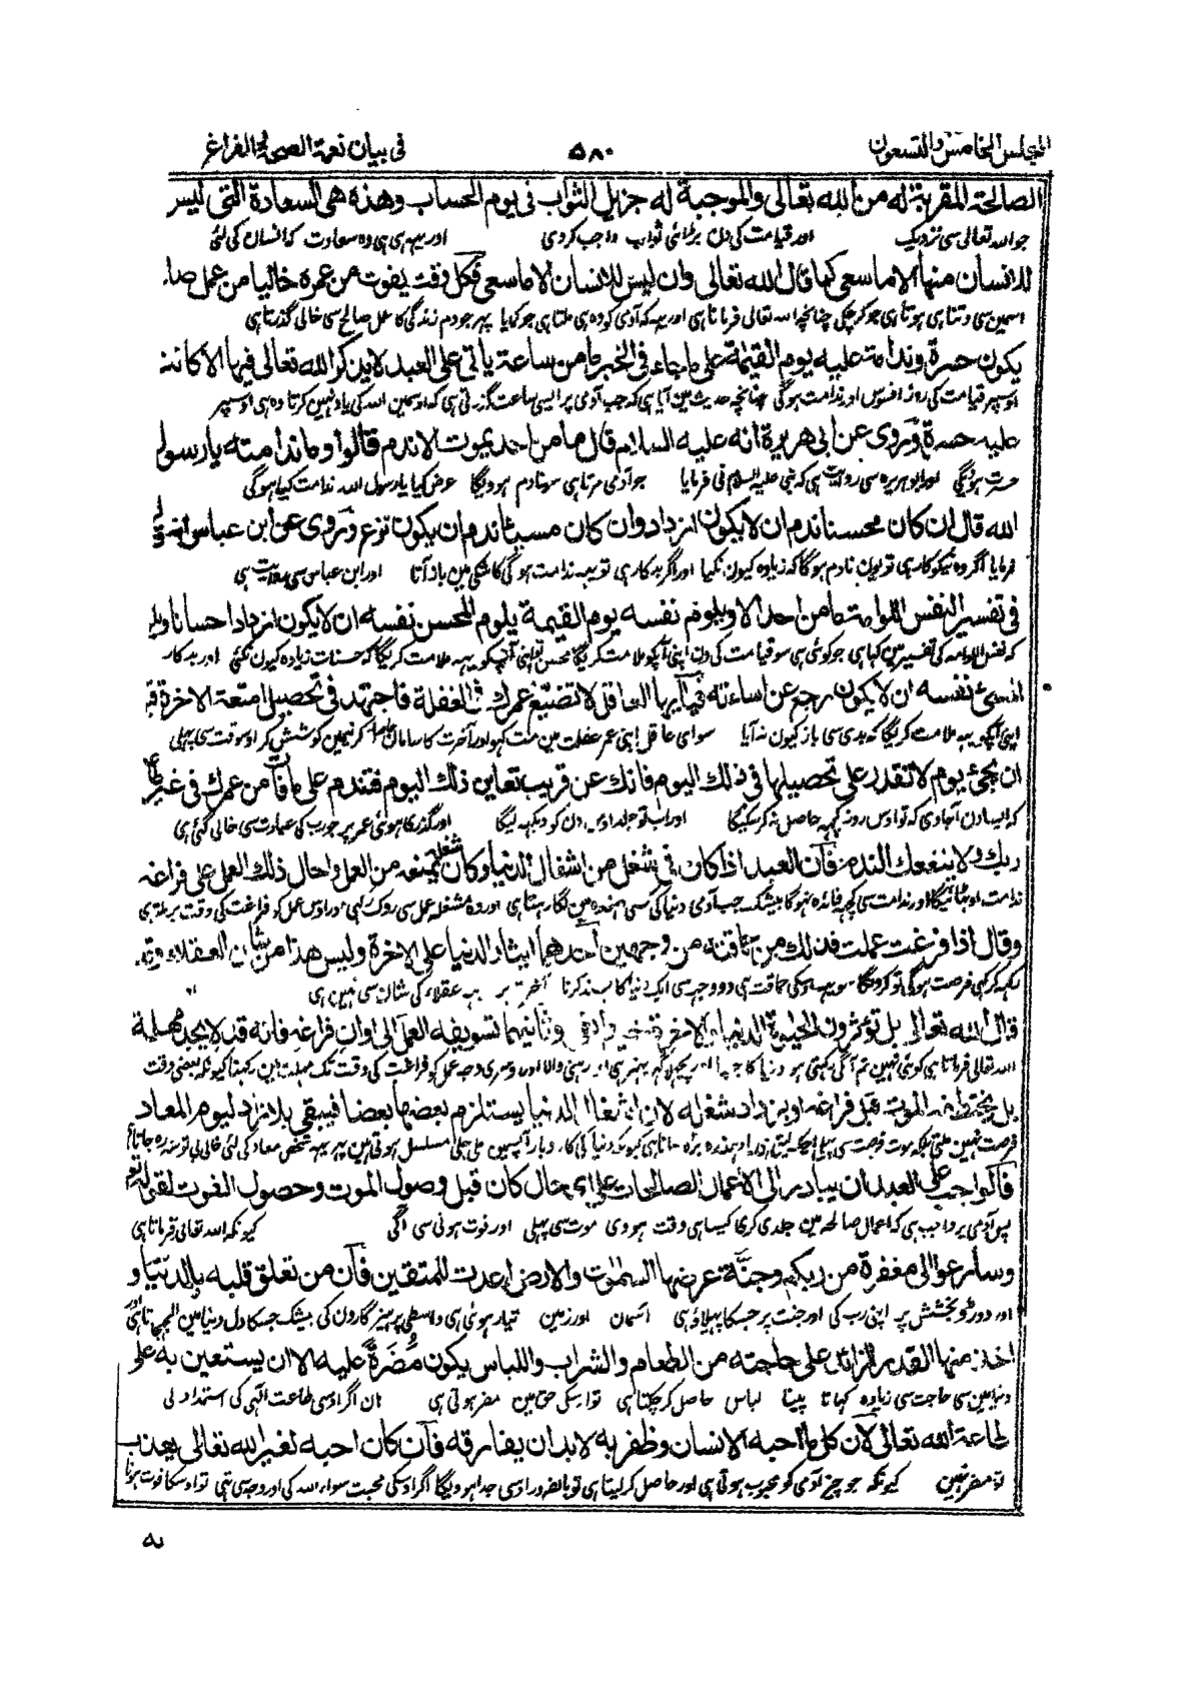 المجلس الخامس والتسعون ۵۸۰ فی بیان نعمة الصحة والفراغ
الصالحة المقربة له من الله تعالى والموجبة له جزيل الثواب فى يوم الحساب وهذه هى السعادة التى ليس
جو الله تعالی سی نزدیک اور قیامت کی دن بڑائی ثواب واجب کردی اور یہی ہی وہ سعادت کہ انسان کی لئی
للانسان منها الا ما سعى كما قال الله تعالى وان ليس للانسان الا ما سعى فكل وقت يفوت من عمره خاليا من عمل صا
اسمین سی وتنا ہی ہوتا ہی جو کرچکی چنانچہ اللہ تعالی فرماتا ہی اور یہ کہ آدمی کو وہ ہی ملتا ہی جو کمایا پہر جو دم زندگی کا عمل صالح سی خالی گذرتا ہی
يكون حسرة وندامة عليه يوم القيمة على ما جاء فى الخبر ما من ساعة ياتى على العبد لا يذكر الله تعالى فيها الا كانت
اوسپر قیامت کی روز افسوس اور ندامت ہوگی چنانچہ حدیث مین آیا ہی کہ جب آدمی پر ایسی ساعت گزرتی ہی کہ اوسمین اللہ کی یاد نہین کرتا وہ ہی اوسپر
عليه حسرة وروى عن ابى هريرة انه عليه السلام قال ما من احد يموت الا ندم قالوا وما ندامته يا رسول
حسرت ہوئیگی اور ابو ہریرہ سی روایت ہی کہ نبی علیہ السلام فی فرمایا جو آدمی مرتا ہی سو نادم ہوویگا عرض کیا یا رسول اللہ ندامت کیا ہوگی
الله قال ان كان محسنا ندم ان لا يكون ازداد وان كان مسيئا ندم ان يكون نزع وروى عن ابن عباس انه
فرمایا اگر وہ نیکوکار ہی تو یون نادم ہوگا کہ زیادہ کیون نکیا اور اگر بدکار ہی تو یہ ندامت ہوگی کاشکی مین باز آتا اور ابن عباس سی روایت ہی
فى تفسير النفس اللوامة ما من احد الا ويلوم نفسه يوم القيمة يلوم المحسن نفسه ان لا يكون ازداد احسانا ويلو
کہ نفس اللوامہ کی تفسیر مین کہا ہی جو کوئی ہی سو قیامت کی دن اپنی آپکو ملامت کریگا محسن تو اپنی آپ کو یہ ملامت کریگا کہ حسنات زیادہ کیون نکئی اور بدکار
المسئ نفسه ان لا يكون رجع عن اساءته فيا ايها العاقل لا تضيع عمرك فى الغفلة فاجتهد فى تحصيل امتعة الاخرة
اپنی آپکو یہ ملامت کریگا کہ بدی سی باز کیون نہ آیا سو ای عاقل اپنی عمر غفلت مین مت کہو اور آخرت کا سامان حاصل کرنیمین کوشش کر اوسوقت سی پہلی
ان يجئ يوم لا تقدر على تحصيلها فى ذلك اليوم فانك عن قريب تعاين ذلك اليوم فتندم على ما فات من عمرك فى غير
کہ ایسا دن آجاوی کہ تو اوس روز کچہہ حاصل نہ کرسکیگا اور اب تو جلد اوس دن کو دیکہہ لیگا اور گذری ہوئی عمر پر جو رب کی عبادت سی خالی گئی ہی
ربك ولا ينفعك الندم فان العبد اذا كان فى شغل من اشغال الدنيا وكان شغله يمنعه من العمل واحال ذلك العمل على فراغه
ندامت اوٹہائیگا اور ندامت سی کچہہ فائدہ نہوگا بیشک جب آدمی دنیا کی کسی دہندہ مین لگا رہتا ہی اور وہ مشغلہ عمل سی روک رہی اور اوس عمل کو فراغت کی وقت پر
وقال اذا فرغت عملت فذلك من حماقته من وجهين احدهما ايثار الدنيا على الاخرة وليس هذا من شان العقلاء
یہ کہہ کر کہ فرصت ہوگی تو کرونگا سو یہ اوسکی حماقت ہی دو وجہ سی ایک دنیا کا پسند کرنا آخرت پر یہ عقلاء کی شان سی نہین ہی
قال الله تعالى بل تؤثرون الحيوة الدنيا والاخرة خير وابقى وثانيهما تسويفه العمل الى اوان فراغه فانه قد لا يجد مهلة
اللہ تعالی فرماتا ہی کوئی نہین تم آگی رکہتی ہو دنیا کا جینا اور پچہلا گہر بہتر ہی اور رہنی والا اور دوسری وجہ عمل کو فراغت کی وقت تک مہلت مین رکہنا کیونکہ بعضی وقت
بل يختطفه الموت قبل فراغه او يزداد شغله لان اشغال الدنيا يستلزم بعضها بعضا فيبقى بلا زاد ليوم المعاد
فرصت نہین ملتی بلکہ موت فرصت سی پہلی اچک لیتی ہی یا دہندہ بڑہ جاتا ہی کیونکہ دنیا کی کار وبار آپسمین ملی جلی مسلسل ہوتی ہین پہر یہ شخص معاد کی لئی خالی بی توشہ رہ جاتا ہی
فالواجب على العبد ان يبادر الى الاعمال الصالحات على اى حال كان قبل وصول الموت وحصول الفوت لقوله تعالى
پس آدمی پر واجب ہی کہ اعمال صالحہ مین جلدی کری کیسا ہی وقت ہووی موت سی پہلی اور فوت ہونی سی آگی کیونکہ اللہ تعالی فرماتا ہی
وسارعوا الى مغفرة من ربكم وجنة عرضها السموت والارض اعدت للمتقين فان من تعلق قلبه بالدنيا و
اور دوڑو بخشش پر اپنی رب کی اور جنت پر جسکا پہیلاؤ ہی آسمان اور زمین تیار ہوئی ہی واسطی پرہیزگارون کی بیشک جسکا دل دنیا مین الجہا تا ہی
اخذ منها القدر الزائد على حاجته من الطعام والشراب واللباس يكون مضرة عليه الا ان يستعين به على
دنیا مین سی حاجت سی زیادہ کہانا پینا لباس حاصل کرچکتا ہی تو اسکی حق مین مضر ہوتی ہی ہان اگر اوسی طاعت الہی کی استمداد لی
طاعة الله تعالى لان كل ما احبه الانسان وظفر به لابد ان يفارقه فان كان احبه لغير الله تعالى يعذب
تو مضر نہین کیونکہ جو چیز آدمی کو محبوب ہوتی ہی اور حاصل کرلیتا ہی تو بالضرور اوسی جدا ہوویگا اگر اوسکی محبت سواء اللہ کی اور وجہ سی تہی تو اوسکا فوت ہونا
به